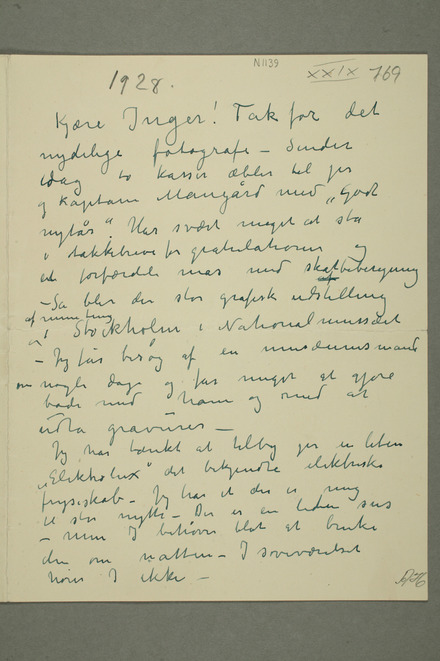 N1139
XXIX 169
1928.
Kjære Inger! Tak for det
nydelige fotografi – Sender
idag to kasser æbler til jer
og Kaptain Mangård med „Godt
nytår". Har svært meget at stå
i takkbreve for gratulationer og
et forfærdeli mas med skatbeberegning
– Så blir der stor grafisk udstilling
af mine ting
i Stockholm i Nationalmusæet
– Jeg får besøg af en musæumsmand
om nogle dage og får meget at gjøre
både med ham og med at
udta gravurer –
Jeg har tænkt at tilby jer en liten
„Elekholux" det bekjendte elektriske
frysiskab – Jeg har et der er mig
til stor nytte – Der er en liden sus
– men I behøver blot at bruke
den om natten – I soveværelset
hører I ikke –